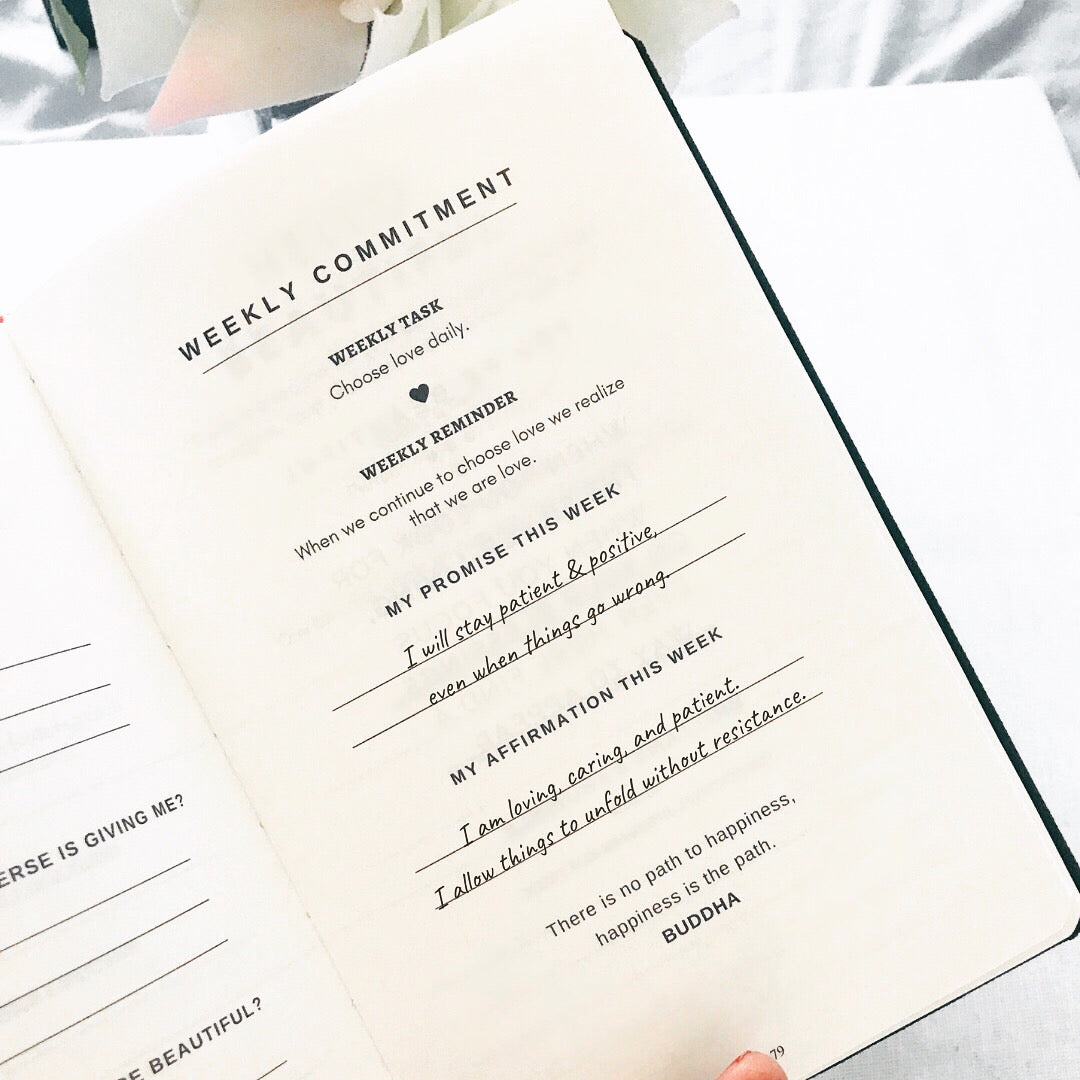 ERSE IS GIVING ME?
BEAUTIFUL?
WEEKLY COMMITMENT
WEEKLY TASK
Choose love daily.
WEEKLY REMINDER
When we continue to choose love we realize
that we are love.
MY PROMISE THIS WEEK
I will stay patient & positive,
even when things go wrong.
MY AFFIRMATION THIS WEEK
I am loving, caring, and patient.
I allow things to unfold without resistance.
There is no path to happiness,
happiness is the path.
BUDDHA
79